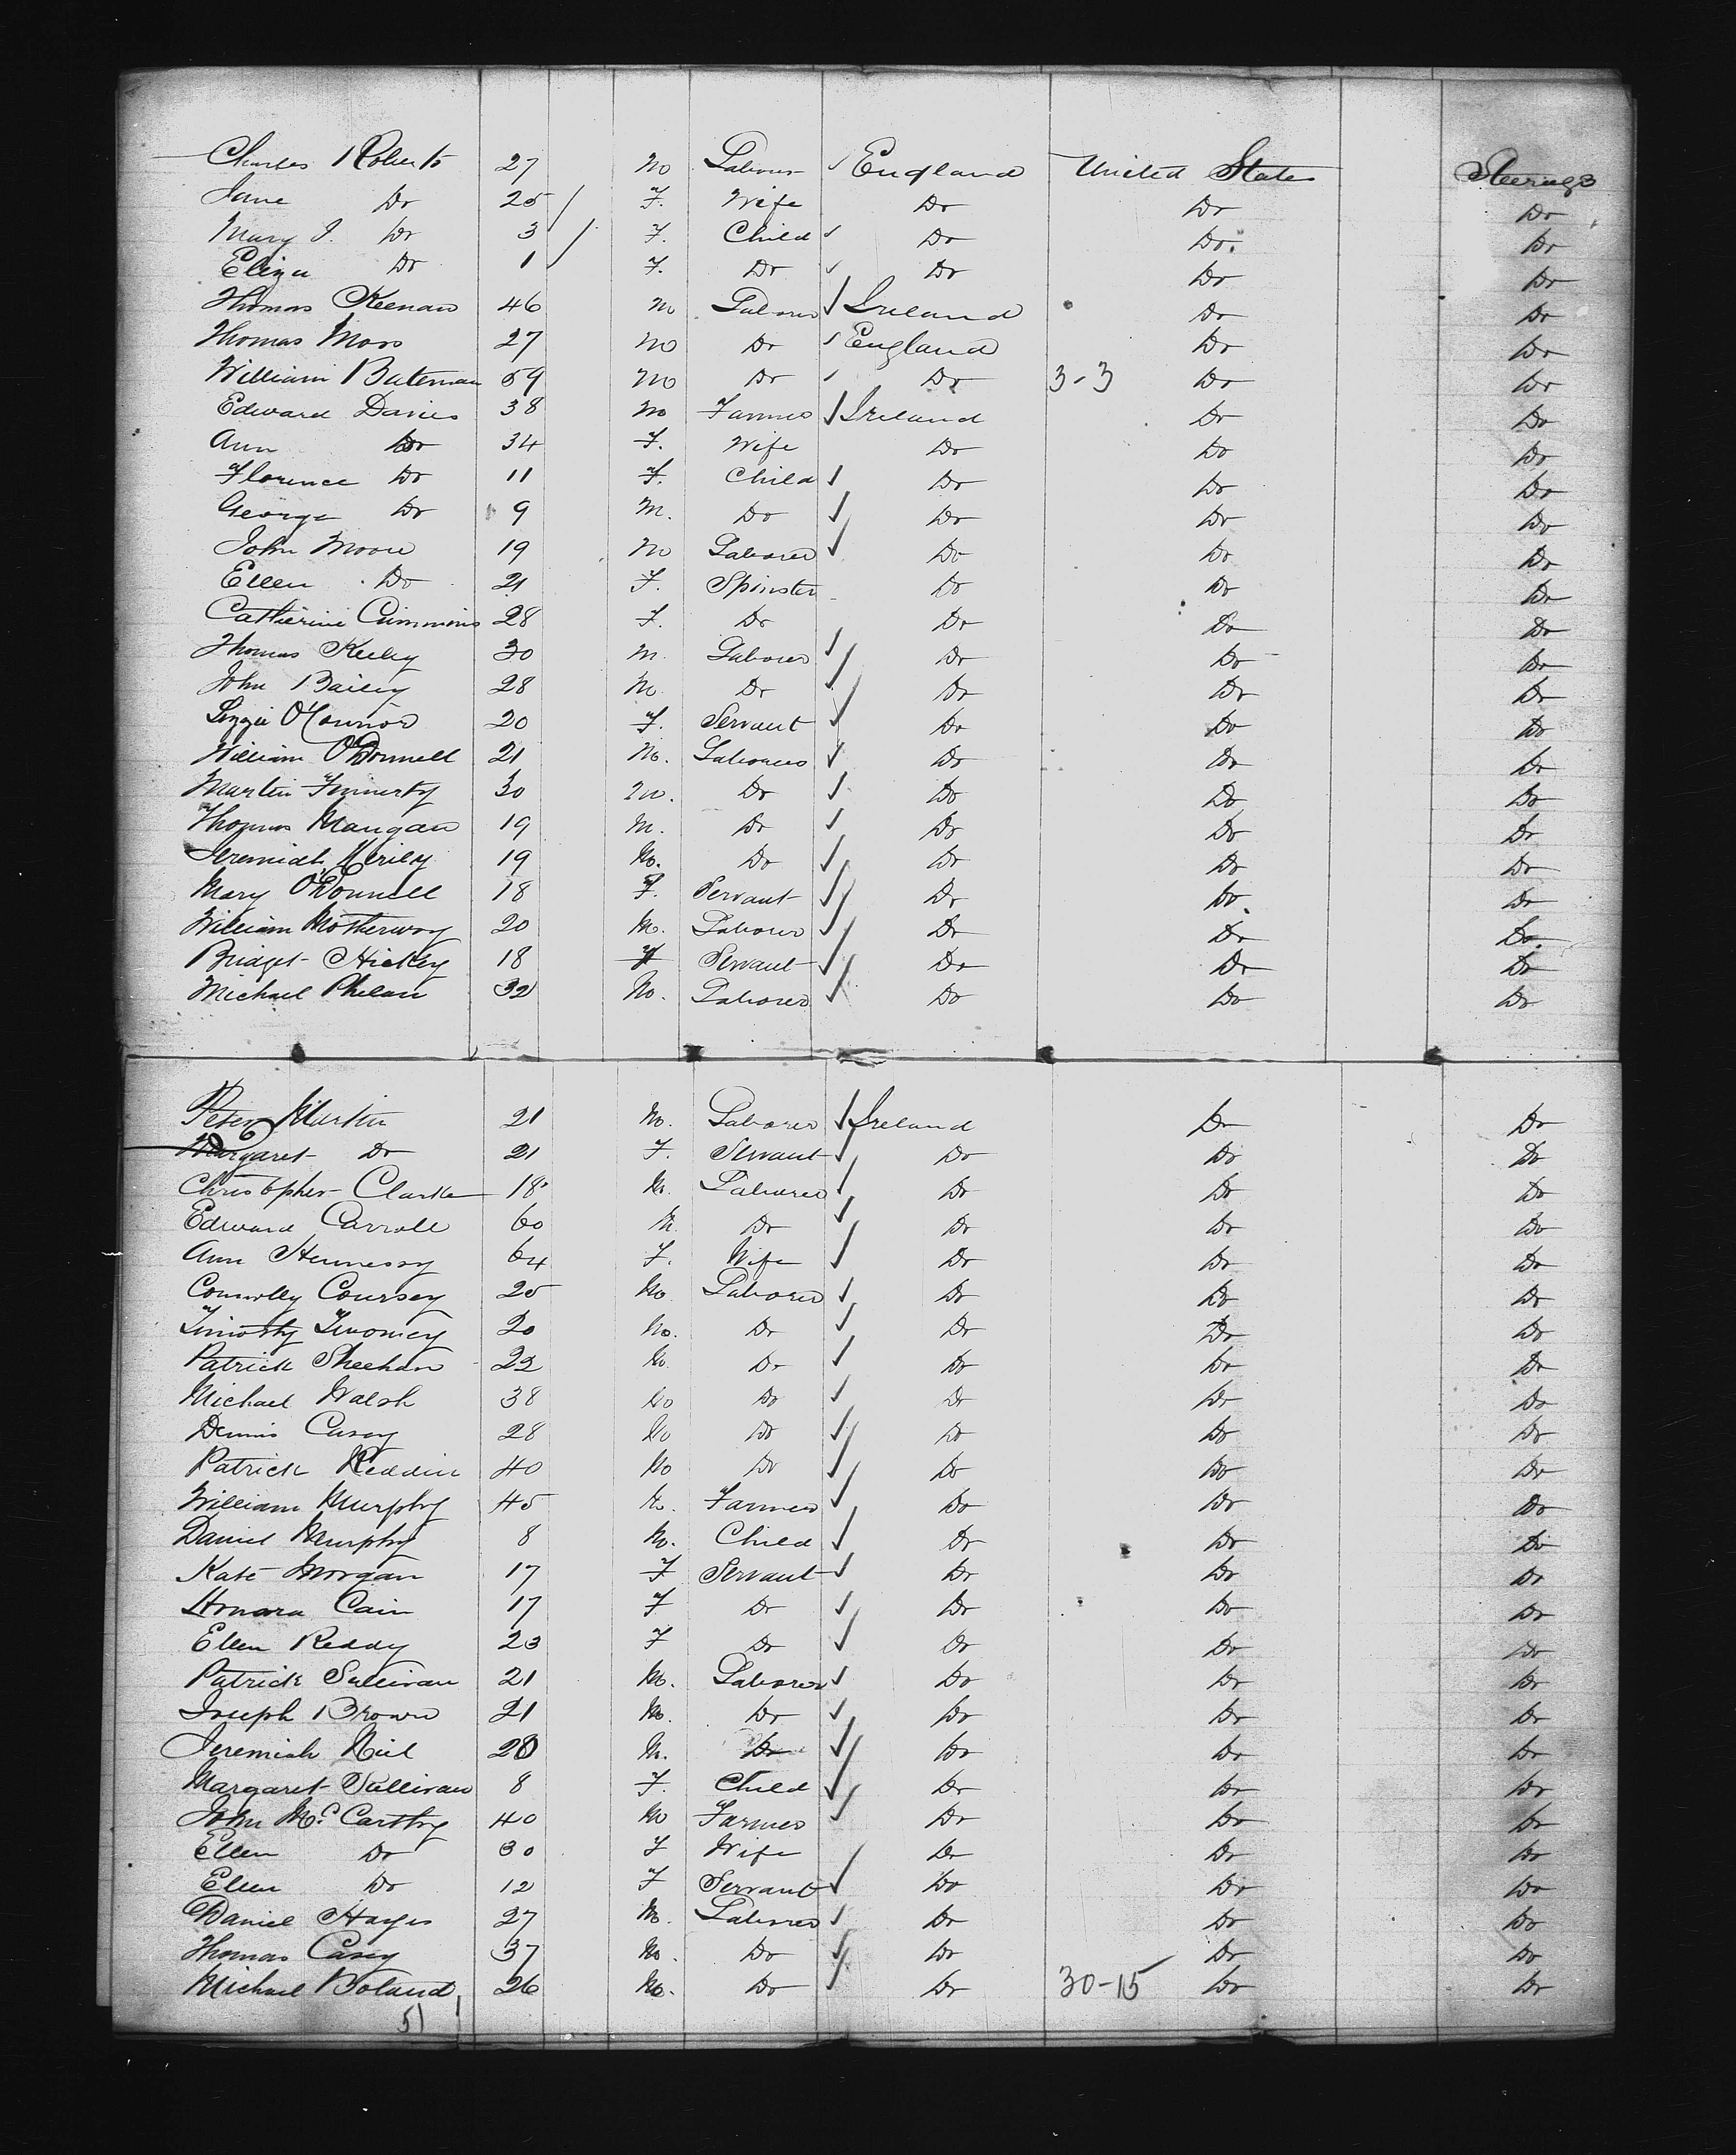 Charles Roberts 27 M Labour England United States Steerage
Jane Do 25 F. Wife Do Do Do
Mary J. Do 3 F. Child Do Do Do
Eliza Do 1 F. Do Do Do Do
Thomas Keenan 46 M Laborer Ireland Do Do
Thomas Moss 27 M Do England Do Do
William Bateman 59 M Do Do 3-3 Do Do
Edward Davies 38 M Farmer Ireland Do Do
Ann Do 34 F. Wife Do Do Do
Florence Do 11 F. Child Do Do Do
George Do 9 M. Do Do Do Do
John Moore 19 M Laborer Do Do Do
Ellen Do 21 F. Spinster Do Do Do
Catherine Cummins 28 F. Do Do Do Do
Thomas Keeley 30 M. Laborer Do Do Do
John Bailey 28 M. Do Do Do Do
Lizzie O'Connor 20 F. Servant Do Do Do
William O'Donnell 21 M. Laborer Do Do Do
Martin Finnerty 30 M. Do Do Do Do
Thomas Mangan 19 M. Do Do Do Do
Jeremiah 19 M. Do Do Do Do
Mary O'Donnell 18 F. Servant Do Do Do
William Motherway 20 M. Laborer Do Do Do
Bridget Hickey 18 F Servant Do Do Do
Michael Phelan 32 M. Laborer Do Do Do
Peter Martin 21 M. Laborer Ireland Do Do
Margaret Do 21 F. Servant Do Do Do
Christopher Clarke 18 M. Laborer Do Do Do
Edward Carroll 60 M. Do Do Do Do
Ann Hennessy 64 F. Wife Do Do Do
Connolly Coursey 25 M. Laborer Do Do Do
Timothy Twomey 20 M. Do Do Do Do
Patrick Sheehan 22 M. Do Do Do Do
Michael Walsh 38 M Do Do Do Do
Dennis Casey 28 M Do Do Do Do
Patrick Reddin 40 M Do Do Do Do
William Murphy 45 M. Farmer Do Do Do
Daniel Murphy 8 M. Child Do Do Do
Kate Morgan 17 F Servant Do Do Do
Honora Cain 17 F Do Do Do Do
Ellen Reddy 23 F Do Do Do Do
Patrick Sullivan 21 M. Laborer Do Do Do
Joseph Brown 21 M. Do Do Do Do
Jeremiah Neil 20 M. Do Do Do Do
Margaret Sullivan 8 F. Child Do Do Do
John McCarthy 40 M Farmer Do Do Do
Ellen Do 30 F Wife Do Do Do
Ellen Do 12 F Servant Do Do Do
Daniel Hayes 27 M. Laborer Do Do Do
Thomas Casey 37 M. Do Do Do Do
Michael Boland 26 M. Do Do 30-15 Do Do
51